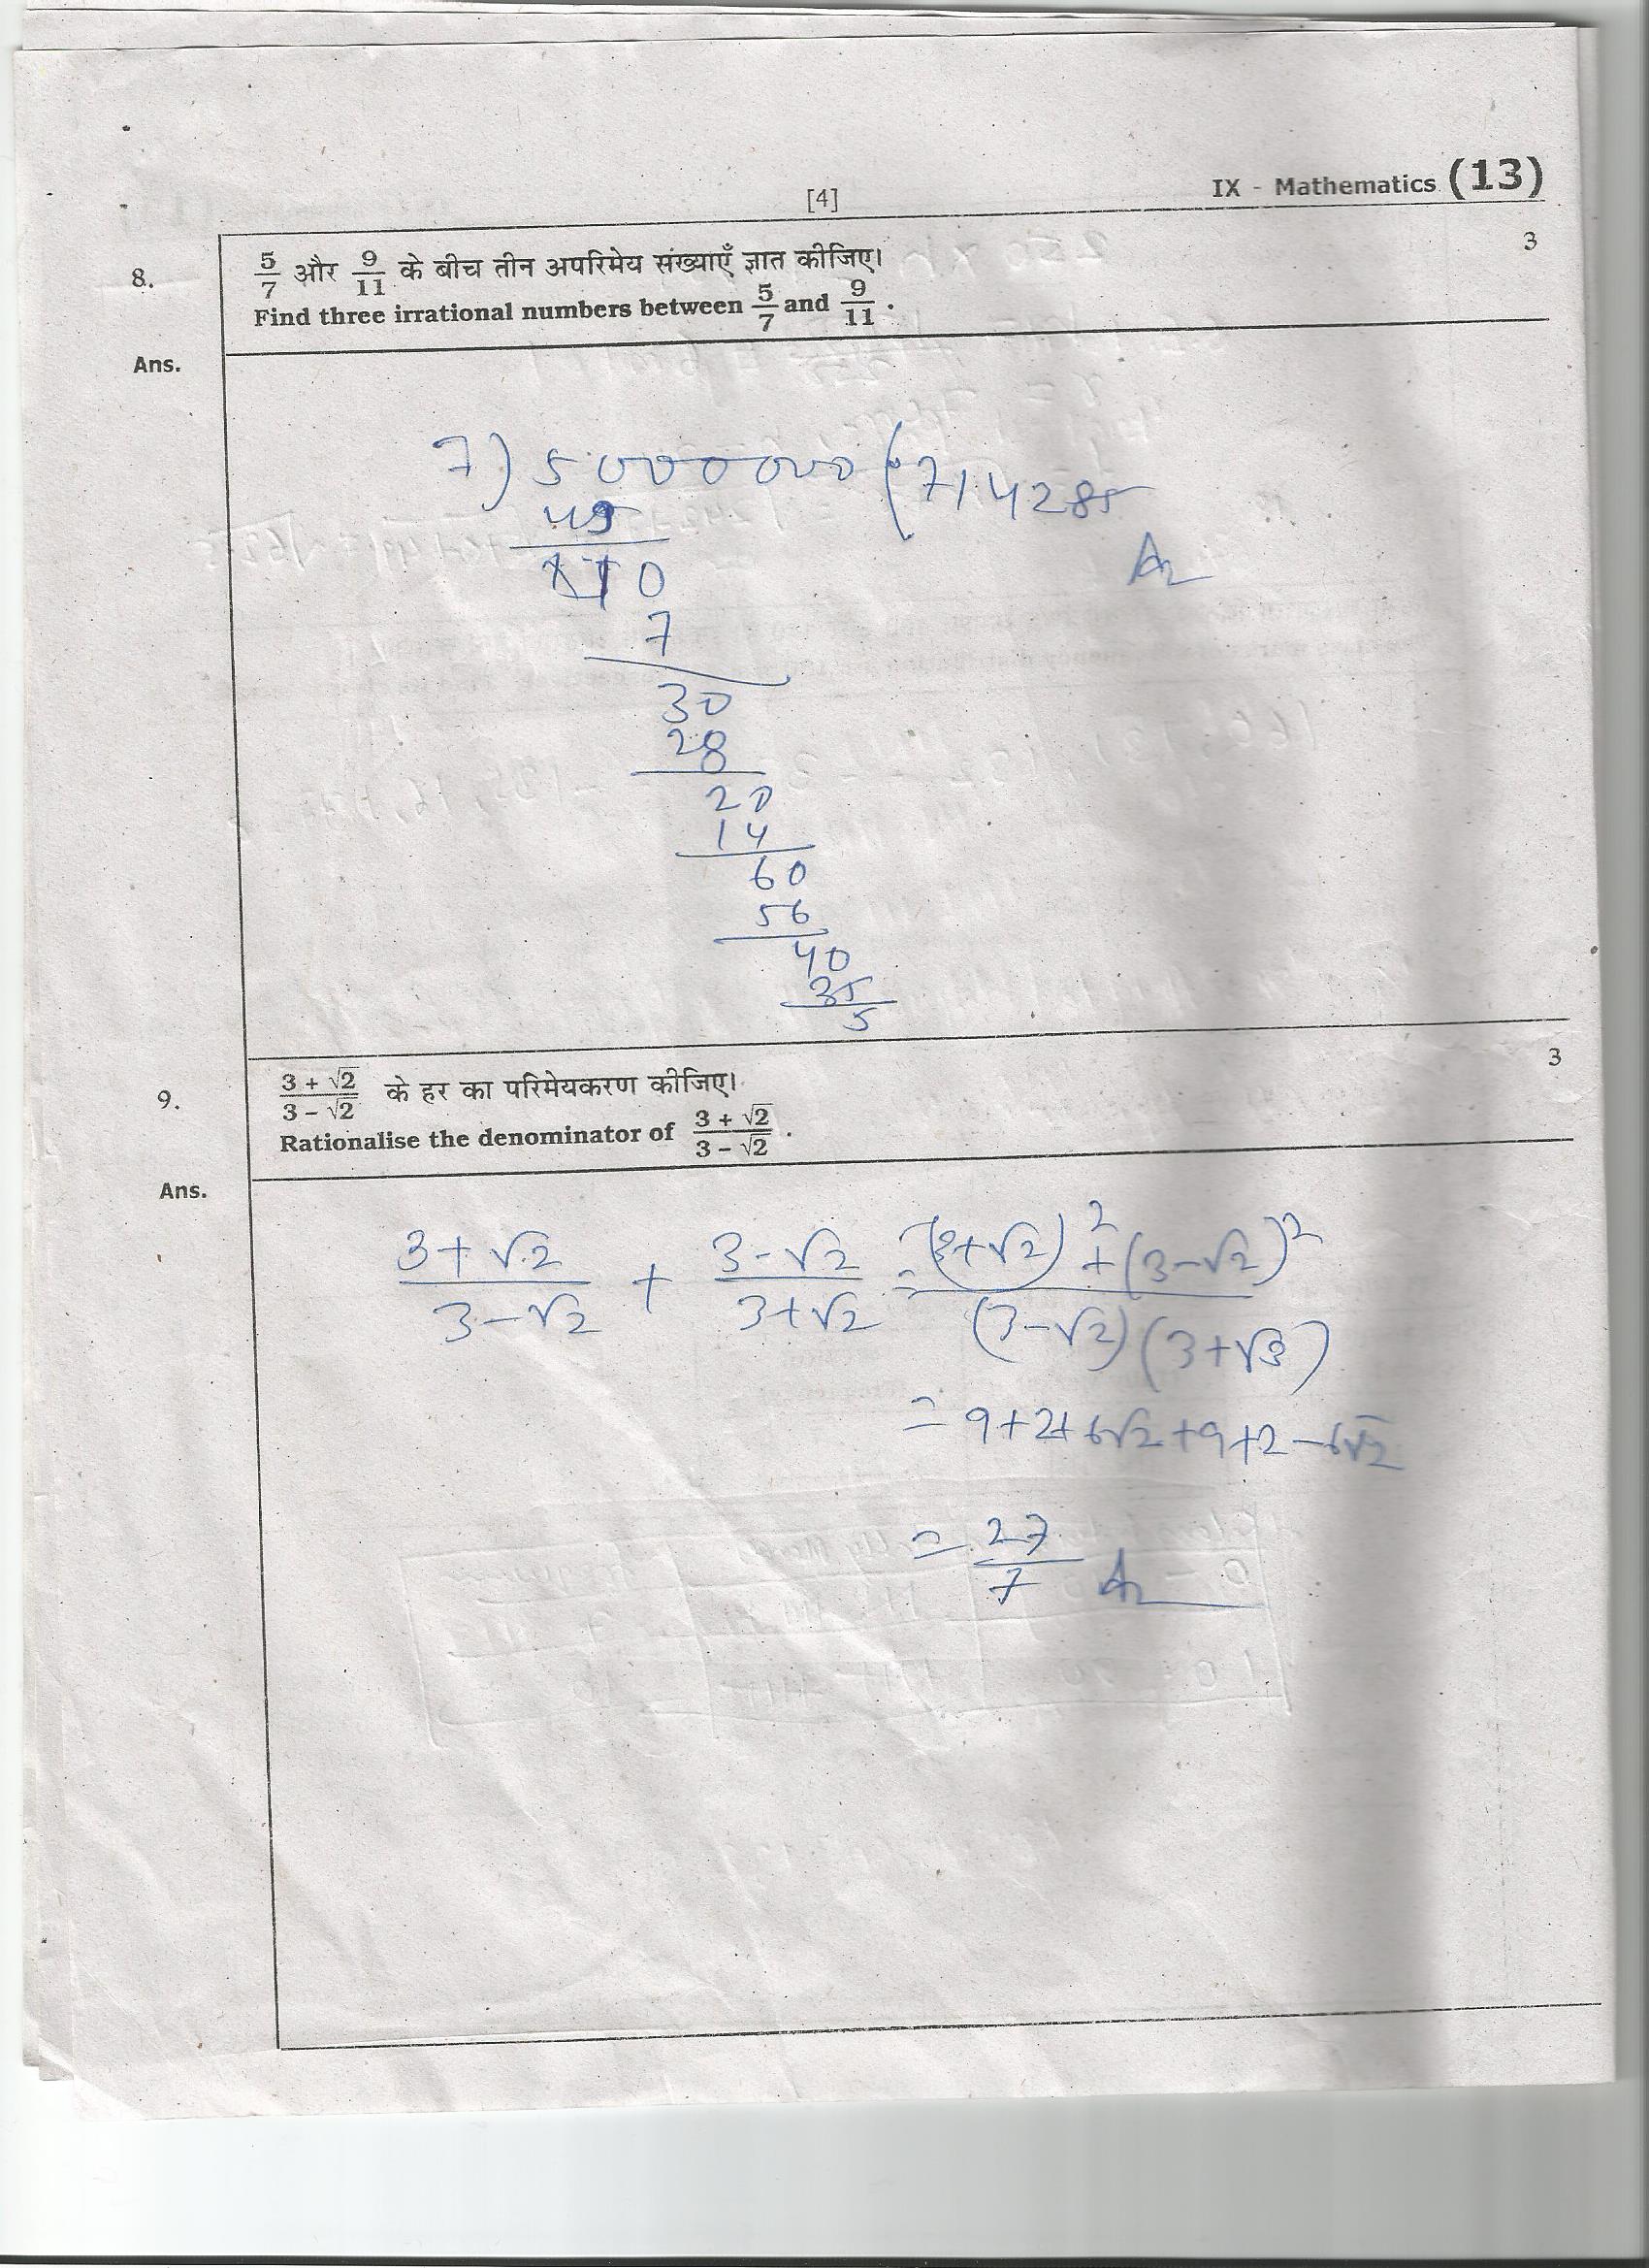 [4]
IX - Mathematics (13)
8. 5/7 और 9/11 के बीच तीन अपरिमेय संख्याएँ ज्ञात कीजिए। 3
Find three irrational numbers between 5/7 and 9/11 .
Ans.
7) 5000000 (.714285
49
10
7
30
28
20
14
60
56
40
35
5
9. (3 + √2)/(3 – √2) के हर का परिमेयकरण कीजिए। 3
Rationalise the denominator of (3 + √2)/(3 – √2) .
Ans.
(3+√2)/(3-√2) + (3-√2)/(3+√2) = ((3+√2)² + (3-√2)²)/((3-√2)(3+√3))
= 9+2+6√2+9+2-6√2
= 27/7